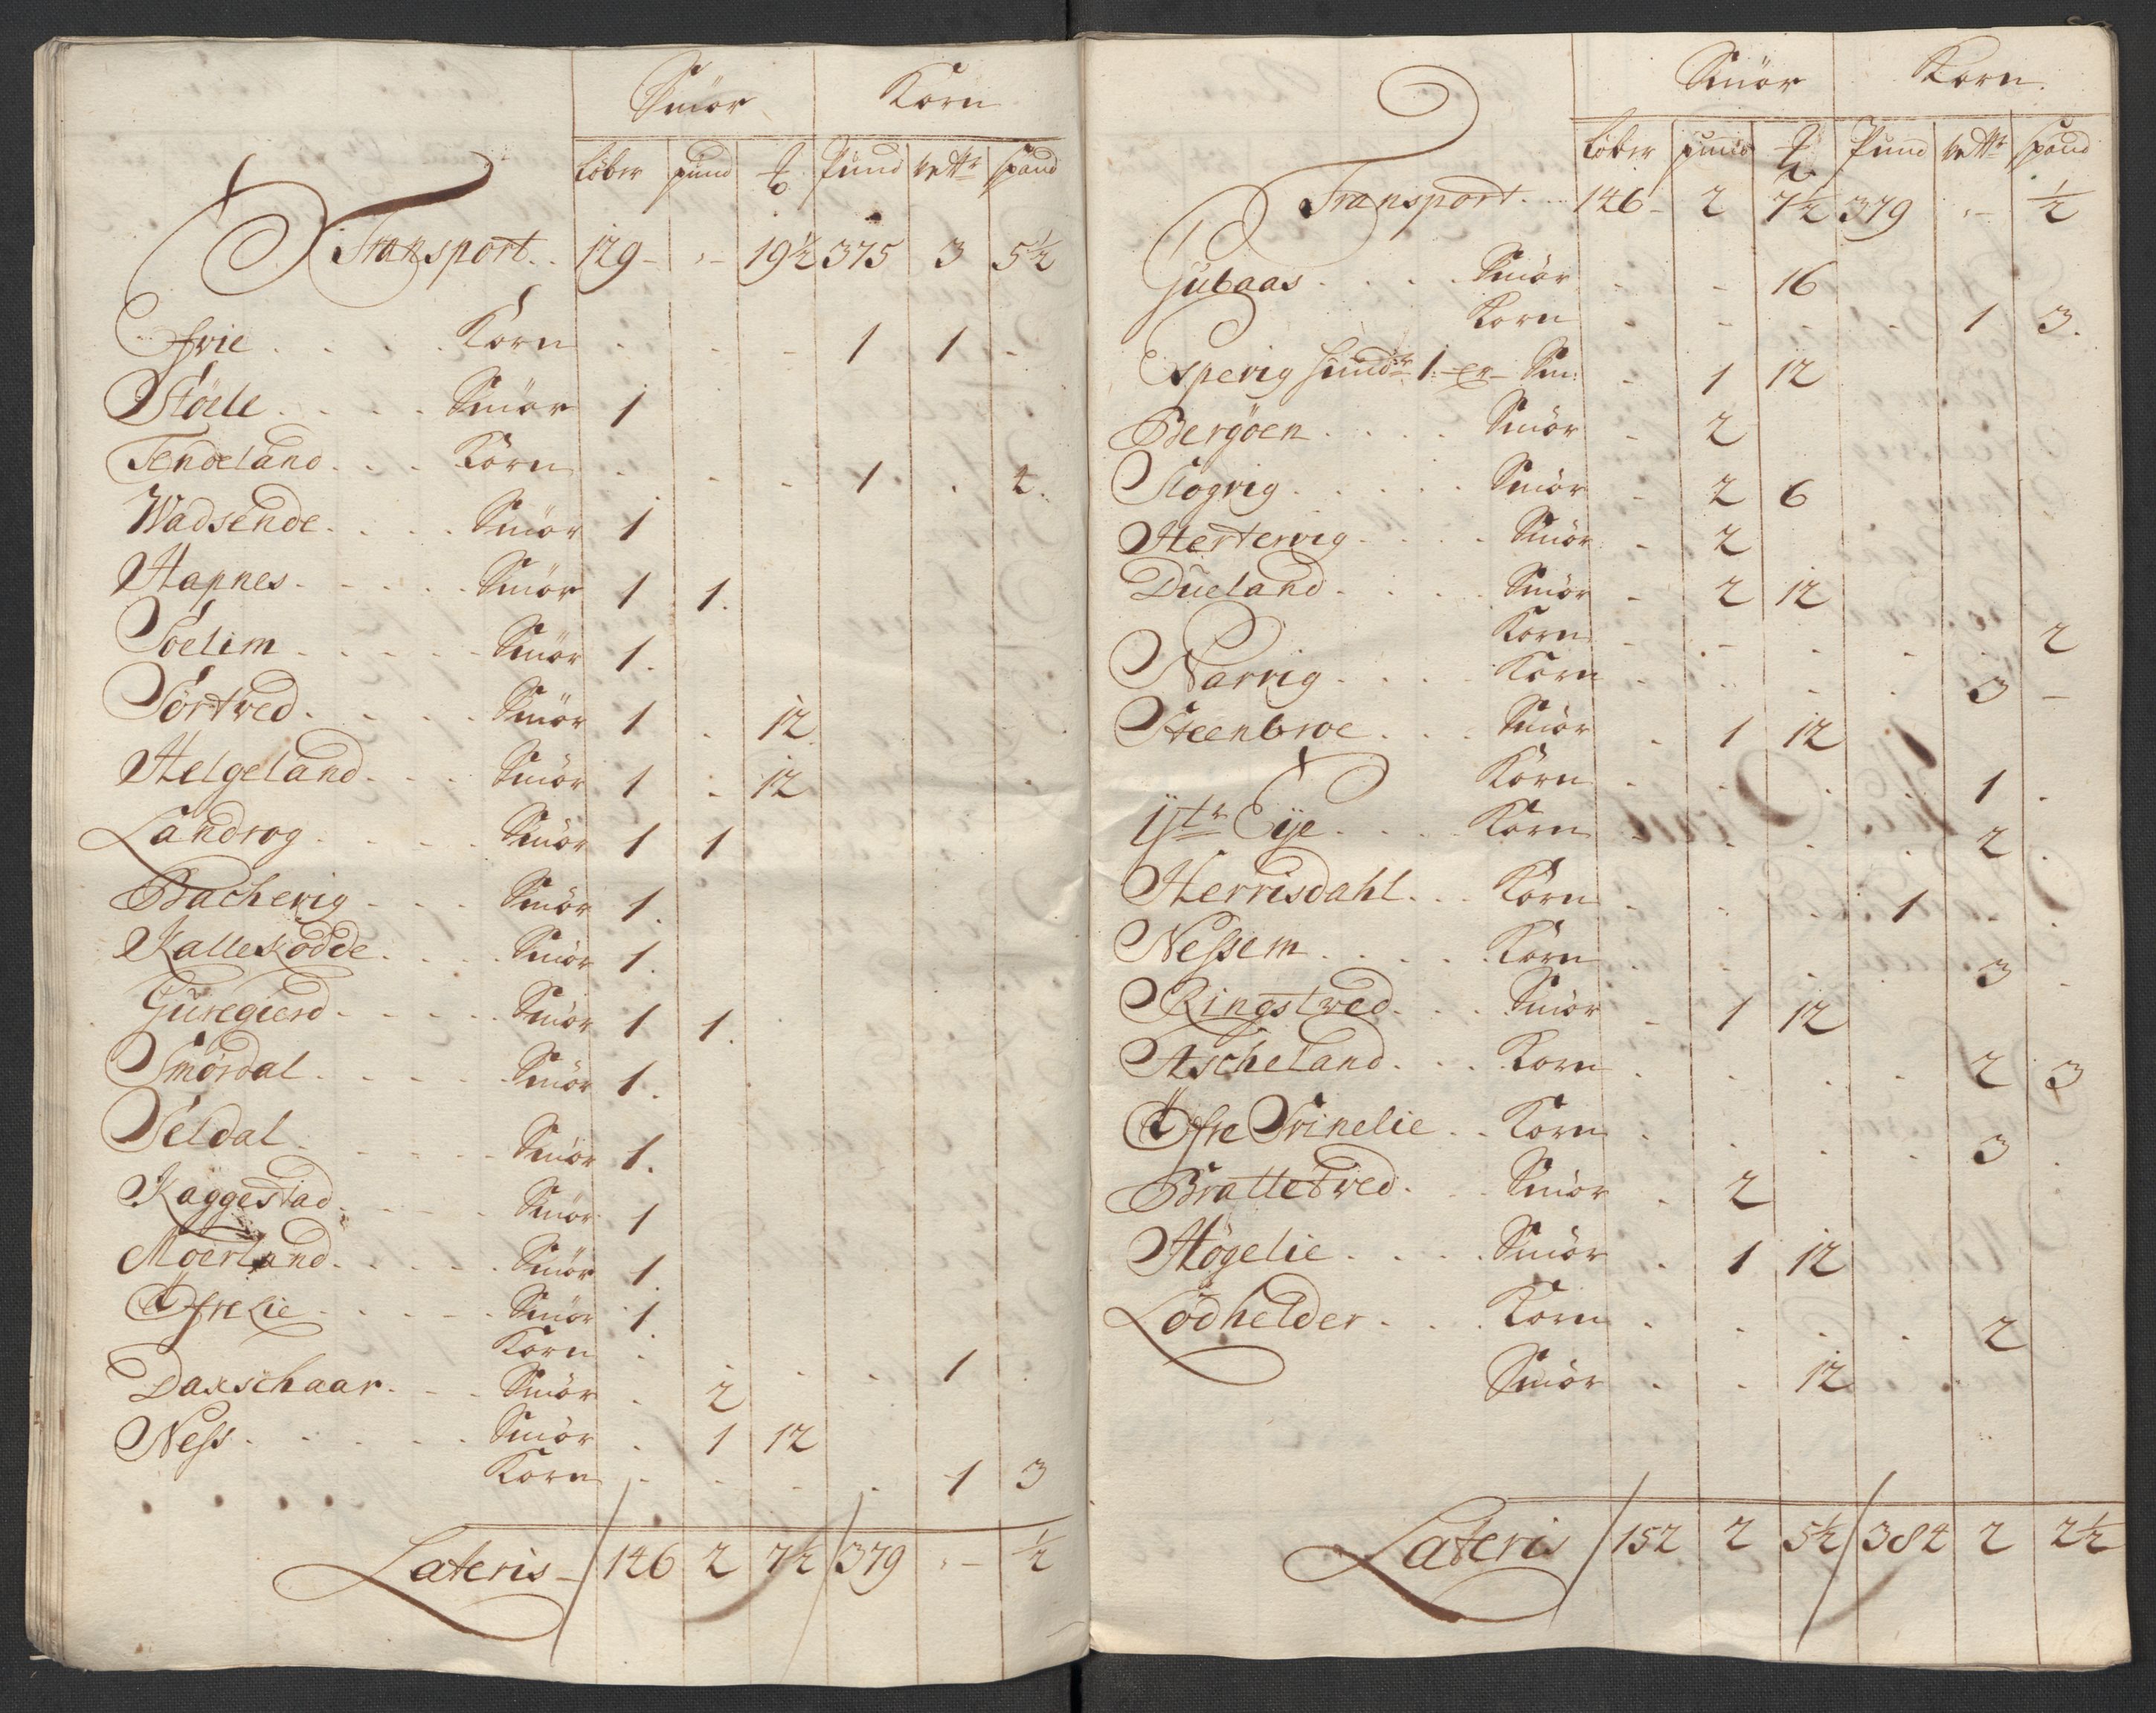 Smör Korn
Löber pund ℔ Pund vettr spand
Transport . . 129 - - 19½ 375 3 5½
Efrie . . . . Korn . - - 1 1 -
Stöele . . . . Smör 1
Tendeland . . . Korn . . - 1 . 4.
Wadsende . . . . Smör 1
Hapnes . . . . Smör 1 1.
Soelim . . . . . Smör 1.
Sörtved . . . . Smör 1 . 12
Helgeland . . . Smör 1 . 12
Landrog . . . . Smör 1 1
Bachevig . . . Smör 1.
Kalleskodde . . . . Smör 1.
Guregierd . . . . . Smör 1 1.
Smördal . . . . . Smör 1.
Seldal . . . . . Smör 1.
Kaggestad . . . . Smör 1
Moerland . . . . . Smör 1.
Öfre Lie . . . . . Smör 1.
Korn . . . . 1 .
Daxschaar . . . Smör . 2
Ness . . . . . . Smör . 1 12
Korn . . . . 1 3
Lateris - 146 2 7½ 379 - ½
Smör Korn
Löber pund ℔ Pund vettr spand
Transport . . . 146 - 2 7½ 379 - ½
Gubaas . . . . Smör . - 16
Korn . - . . 1 3.
Espevig 1 Sm: - 1 12
Bergöen . . . . Smör - 2
Slogvig . . . . . Smör - 2 6
Hertervig . . . . Smör - 2
Dueland . . . . Smör - 2 12
Korn - - . . . 2
Narvig . . . . Korn . . . . 3 -
Steenbroe . . . Smör . 1 12
Korn . . . . 1 .
Ytr Eye . . . . Korn . . . . 2 .
Herrisdahl . . . Korn . . . 1 . .
Nessem . . . . Korn . . . 3 .
Ringstved . . . Smör - 1 12
Ascheland . . . Korn . . . . 2 3
Öfre Trinelie . . Korn . . . . 3 .
Brattetved . . . Smör . 2
Högelie . . . . Smör . 1 12
Lodhelder . . . Korn . . . . 2
Smör . . 12
Lateris 152 2 5½ 384 2 2½